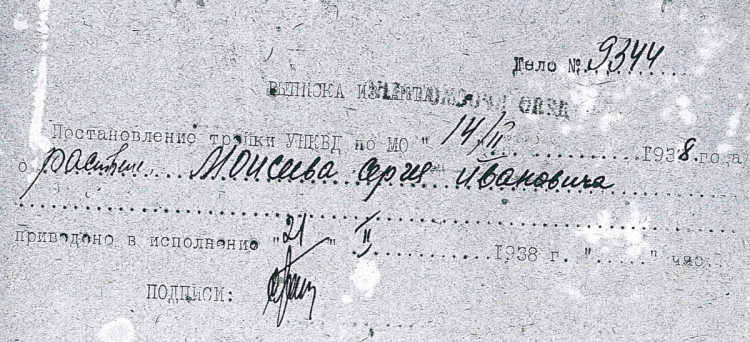 Дело № 9344
ВЫПИСКА ИЗ
Постановление тройки УНКВД по МО " 14/II 1938 года
о расстреле Моисеева Сергея Ивановича
приведено в исполнение "21" II 1938 г. "....." час.
ПОДПИСИ: